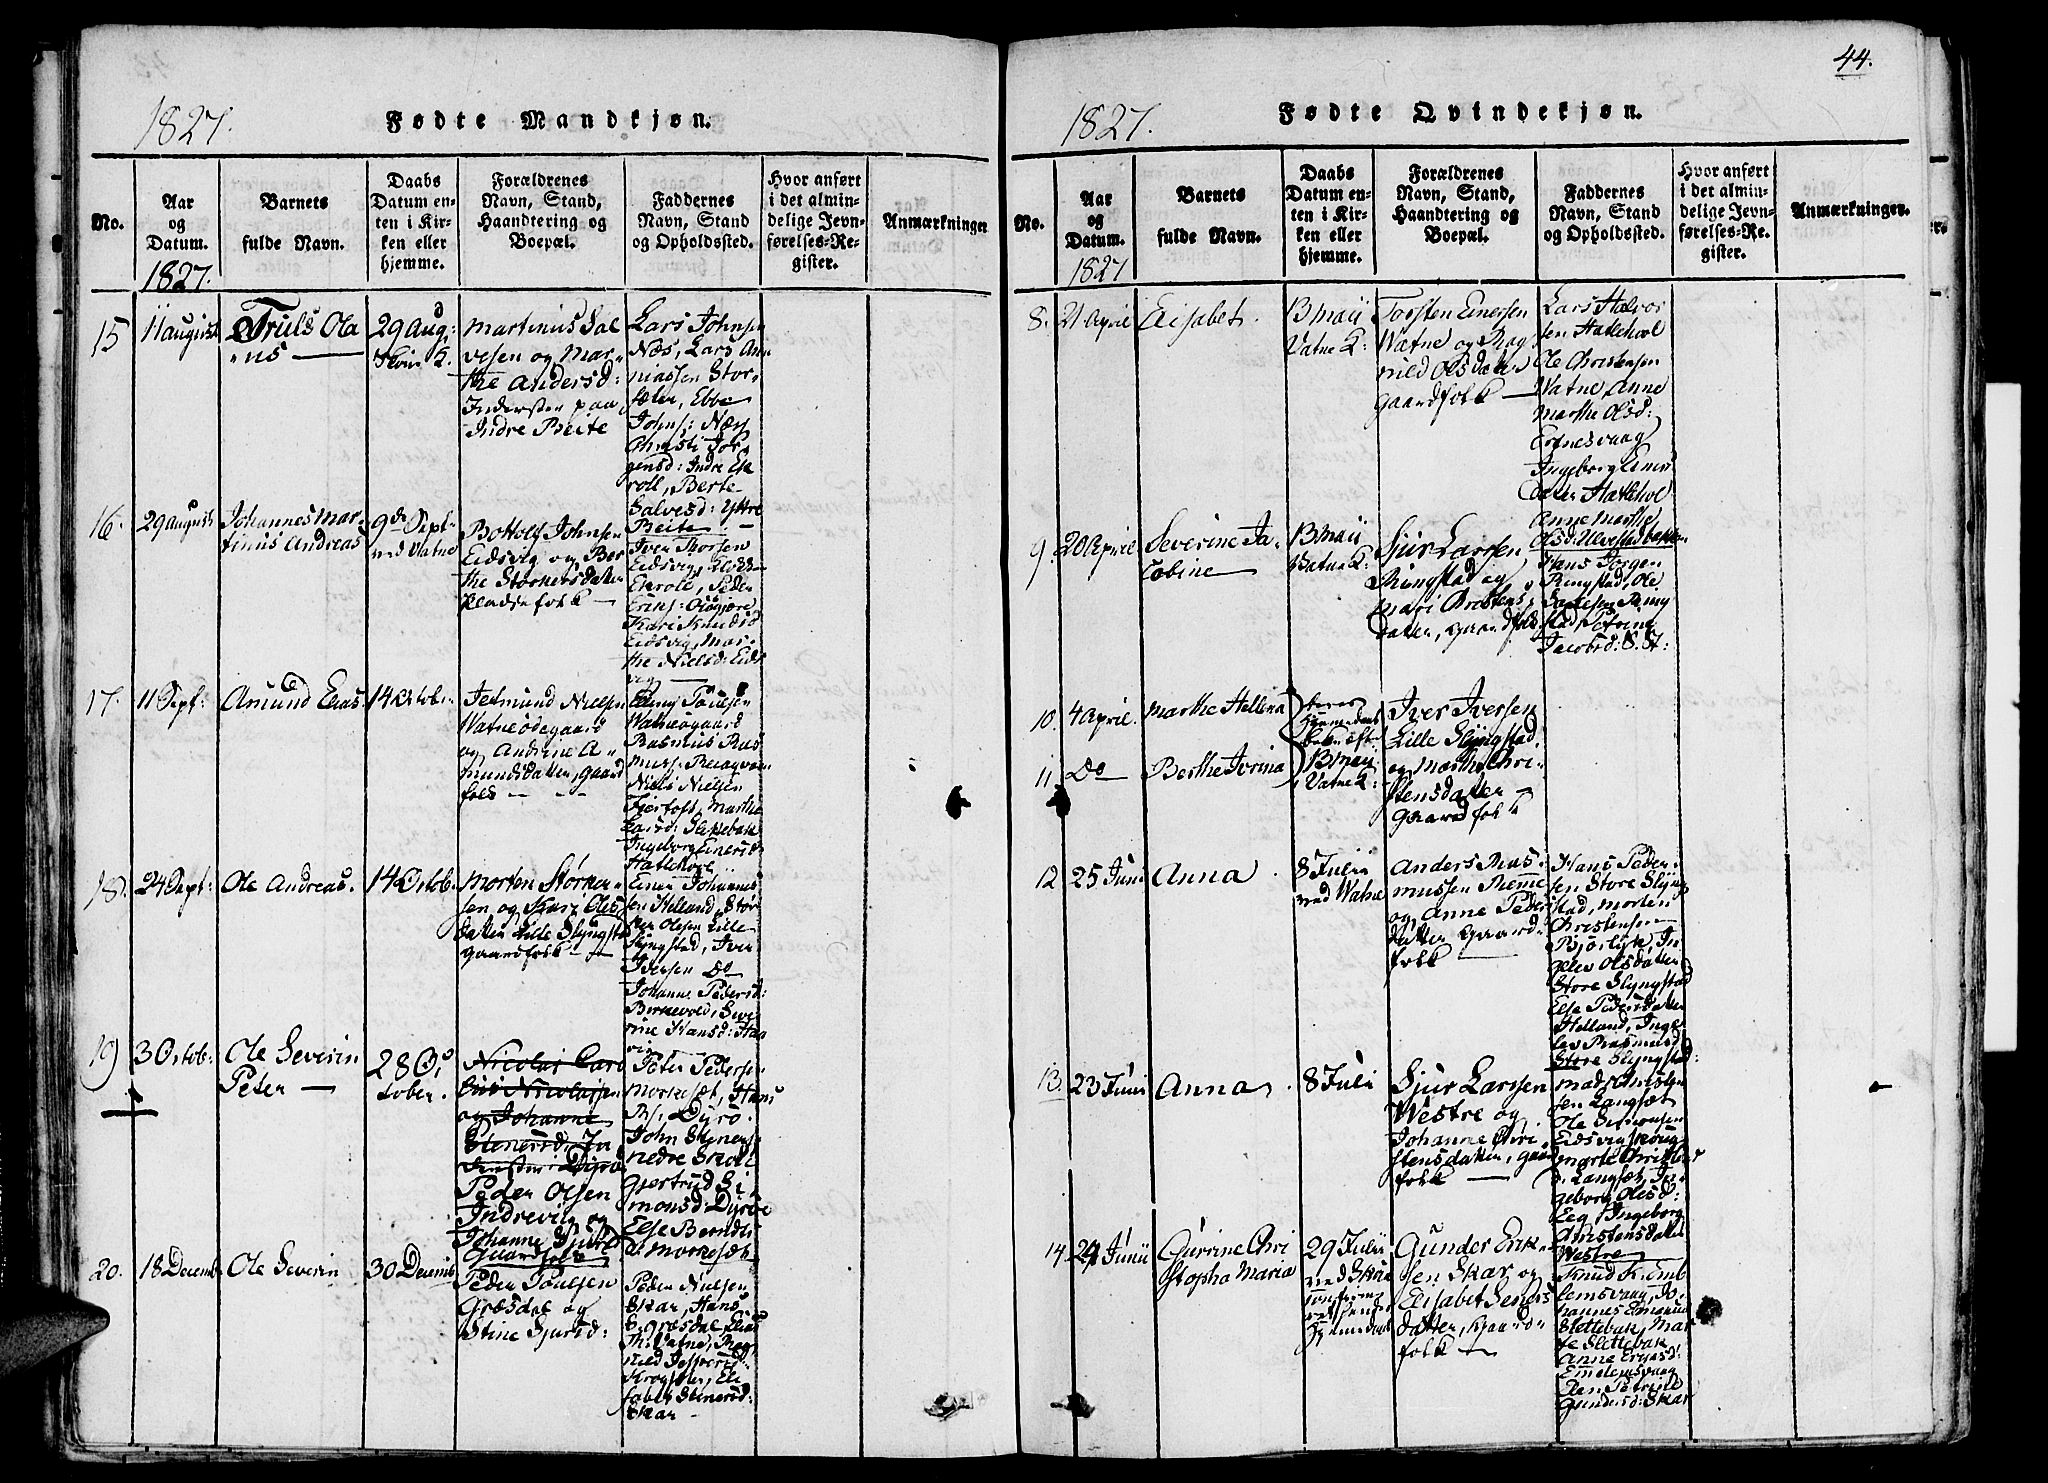 44.
1827.
Fødte Mandkjøn.
No.
Aar
og
Datum.
1827.
Barnets
fulde Navn.
Daabs
Datum en-
ten i Kir-
ken eller
hjemme.
Forældrenes
Navn, Stand,
Haandtering og
Boepæl.
Faddernes
Navn, Stand
og Opholdssted.
Hvor anført
i det almin-
delige Jevn-
førelses-Re-
gister.
Anmærkninger
15
11 August
Truls Ola
us
29 Aug:
Martinus Sal
vesen og Mar-
the Andersd:
Inderster paa
Indre Beite
Lars Johnsen
Næs, Lars An-
niassen Stor-
sæter, Ebbe
Johns: Næss
Christi Jør
gensd: Indre Ek
roll, Berte
Salvesd: Yttre
Beite
16.
29 August
Johannes Mar-
tinus Andreas
9de Sept-
ved Vatne
Bottolf Johnsen
Eidsvig og Ber
the Størkersdatter
Pladsefolk
Iver Thorsen
Eidsvig,
Ekrole, Peder
Eriks:
Kari Knudsd
Eidsvig, Mar-
the Nielsd: Eids
vig
17.
11 Sept:
Amund Elias
14 Octob:
Jetmund Nielsen
Watneødegaard
og Andrine A-
mundsdatter, gaard
folk
Poulsen
Watneøgaard
Rasmus Ras
muss:
Niels Nielsen
Fjørtoft, Marthe
Larsd: Slettebak
Ingeborg Einersd
Hatlehole
18.
24 Sept:
Ole Andreas.
14 Octob.
Morten Størker-
sen og Kari Oles
datter Lille Slyngstad
gaardfolk
Einer Johannes
sen Helland, Stør
ker Olesen Lille
Slyngstad, Iver
Iversen Do
Johanne Pedersd:
Birkevold, Seve
rine Hansd: Haa
vig
19
3 Octob:
Ole Severin
Peter
28 Oc
tober.
Nicolai Caro
lius Nicolaisen
og Johanne
Stenersd: In
derster Dyrø
Peder Olsen
Indrevig og
Johanne Sjursd
Gaardfolk
Peter Peders:
Morkeset, Hans
Ps: Dyrø.
John Steners:
nedre Skoll
Gjertrud Si
monsd: Dyrøe
Else Berndts
d: Morkesæth
20.
18 Decemb
Ole Severin
30 Decemb
Peder Poulsen
Græsdal og
Stine Sjursd:
Peder Nielsen
Skar, Hans
Græsdal, Elias
Th: Vatne, Rag
nild Jespersd
Krogsæter, Eli
sabet Stenersd:
Skar
1827.
Fødte Qvindekjøn.
No.
Aar
og
Datum.
1827
Barnets
fulde Navn.
Daabs
Datum en-
ten i Kir-
ken eller
hjemme.
Forældrenes
Navn, Stand,
Haandtering og
Boepæl.
Faddernes
Navn, Stand
og Opholdssted.
Hvor anført
i det almin-
delige Jevn-
førelses-Re-
gister.
Anmærkninger.
8.
21 April
Elisabet.
13 Maii
Vatne K:
Torsten Einersen
Watne og Rag
nild Olsdatter
Gaardfolk
Lars Halvor
sen Hatlehol
Ole Christensen
Watne Anne
Marthe Olsd:
Eidnesvaag
Ingeborg Einers
datter Hatlehol
Anne Marthe
Olsd: Ulvestadbakken
9.
20 April
Severine Ja
cobine
13 Maii
Vatne K:
Sjur Larsen
Ringstad og
Mari Christens
datter, Gaardfolk
Hans Jørgen
Ringstad, Ole
Ring
stad Petrine
Jacobsd: S. St:
10.
4 April
Marthe Hellena
Iver Iversen
Lille Slyngstad
og Marthe Chri-
stensdatter
Gaardfolk
11.
Do
Berthe Ivrina
13 Maii
Vatne K:
12
25 Junii
Anna
8 Julii
ved Watne
Anders Ras
mussen Remme
og Anne Peders
datter Gaard-
folk
Hans Peder-
sen Store Slyng
stad, Morten
Christensen
Bjørlyk, In
gelev Olsdatter
Store Slyngstad
Else Pedersdatter
Helland, Inge
lev Rasmusd
Store Slyngstad:
13.
23 Junii
Anna
8 Julii
Sjur Larssen
Westre og
Johanne Chri-
stensdatter, gaard
folk
Mads Christen
sen Langset
Ole Simonsen
Eidsvigskoug
Marte Christens
d: Langset, In-
geborg Olesd:
Eeg, Ingeborg
Christensdatter
Westre
14.
24 Junii
Gurine Chri
stopha Maria
29 Julii
ved Skar
Gunder Erik-
sen Skar og
Elisabet Seners
datter, Gaard-
folk
Knud Kumb
lemsvaag, Jo-
hannes Emanuel
Slettebak, Mar
te Slettebak
Anne
Ellen Petrine
Gundersd: Skar